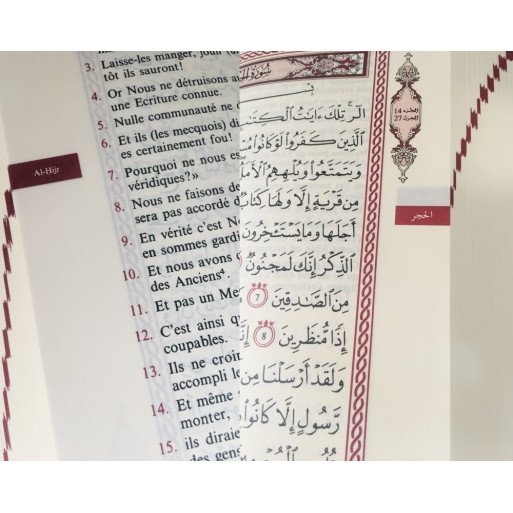 Al-Hijr
3. Laisse-les manger, jouir (d
tôt ils sauront!
4. Or Nous ne détruisons a
une Ecriture connue.
5. Nulle communauté ne
6. Et ils (les mecquois) di
es certainement fou!
7. Pourquoi ne nous es
véridiques?»
8. Nous ne faisons de
sera pas accordé d
9. En vérité c'est N
en sommes gardi
10. Et nous avons
des Anciens⁴.
11. Et pas un Me
12. C'est ainsi q
coupables.
13. Ils ne croir
accompli le
14. Et même
monter,
15. ils diraie
des gens
سُورَةُ الحِ
بِسْـ
الٓر تِلْكَ ءَايَٰتُ ٱلْكِتَٰ
ٱلَّذِينَ كَفَرُوا۟ لَوْ كَانُوا۟ مُ
وَيَتَمَتَّعُوا۟ وَيُلْهِهِمُ ٱلْأَمَلُ
مِن قَرْيَةٍ إِلَّا وَلَهَا كِتَابٌ
أَجَلَهَا وَمَا يَسْتَـْٔخِرُونَ
ٱلذِّكْرُ إِنَّكَ لَمَجْنُونٌ
مِنَ ٱلصَّٰدِقِينَ 7
إِذًا مُّنظَرِينَ 8 إِنَّ
وَلَقَدْ أَرْسَلْنَا مِن
رَّسُولٍ إِلَّا كَانُوا۟
الجزء 14
الحزب 27
الحجر